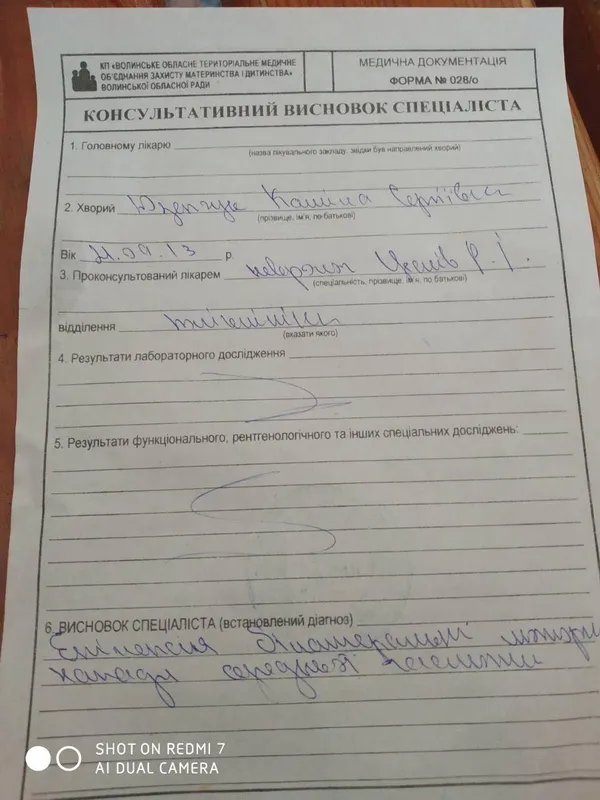 КП «ВОЛИНСЬКЕ ОБЛАСНЕ ТЕРИТОРІАЛЬНЕ МЕДИЧНЕ
ОБ'ЄДНАННЯ ЗАХИСТУ МАТЕРИНСТВА І ДИТИНСТВА»
ВОЛИНСЬКОЇ ОБЛАСНОЇ РАДИ
МЕДИЧНА ДОКУМЕНТАЦІЯ
ФОРМА № 028/о
КОНСУЛЬТАТИВНИЙ ВИСНОВОК СПЕЦІАЛІСТА
1. Головному лікарю
(назва лікувального закладу, звідки був направлений хворий)
2. Хворий Каміла Сергіївна
(прізвище, ім'я, по батькові)
Вік 21.09.13 р.
3. Проконсультований лікарем невролог
(спеціальність, прізвище, ім'я, по батькові)
відділення
(вказати якого)
4. Результати лабораторного дослідження
5. Результати функціонального, рентгенологічного та інших спеціальних досліджень:
6. ВИСНОВОК СПЕЦІАЛІСТА (встановлений діагноз)
Епілепсія білатеральні моторні
напади середньої частоти
SHOT ON REDMI 7
AI DUAL CAMERA